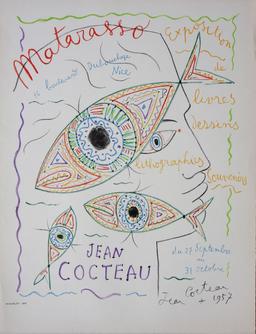 Matarasso
Exposition
de
livres
dessins
lithographies
Souvenirs
Boulevard Dubouchage
Nice
JEAN
COCTEAU
du 27 Septembre
au
31 Octobre
Jean Cocteau
1957